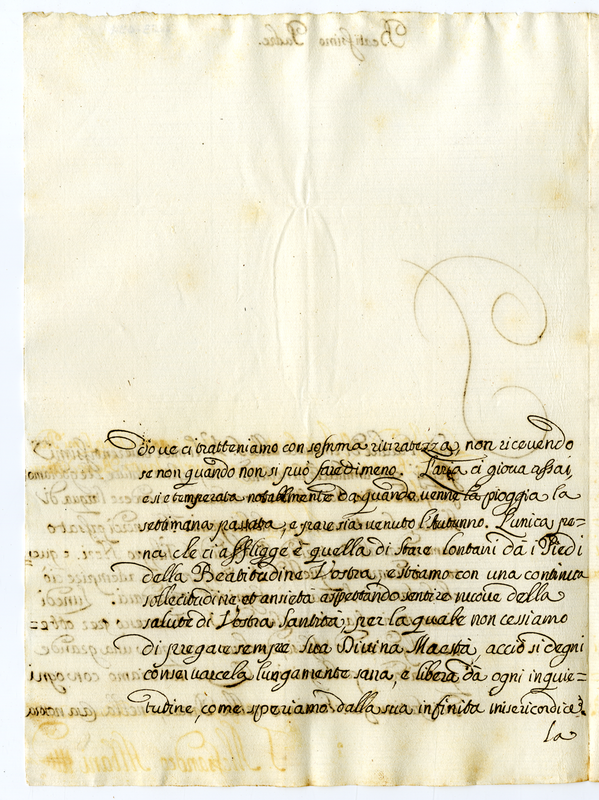 dove ci tratteniamo con somma ritiratezza, non ricevendo
se non quando non si può fare di meno. L'aria ci giova assai,
e si è temperata notabilmente da quando venne la pioggia la
settimana passata, e pare sia venuto l'Autunno. L'unica pe=
na che ci affligge è quella di stare lontani da i Piedi
della Beatitudine Vostra, e stiamo con una continua
sollecitudine et ansietà aspettando sentire nuove della
salute di Vostra Santità; per la quale non cessiamo
di pregare sempre Sua Divina Maestà, acciò si degni
conservarcela lungamente sana, e libera da ogni inquie=
tudine, come speriamo dalla sua infinita misericordia.
la